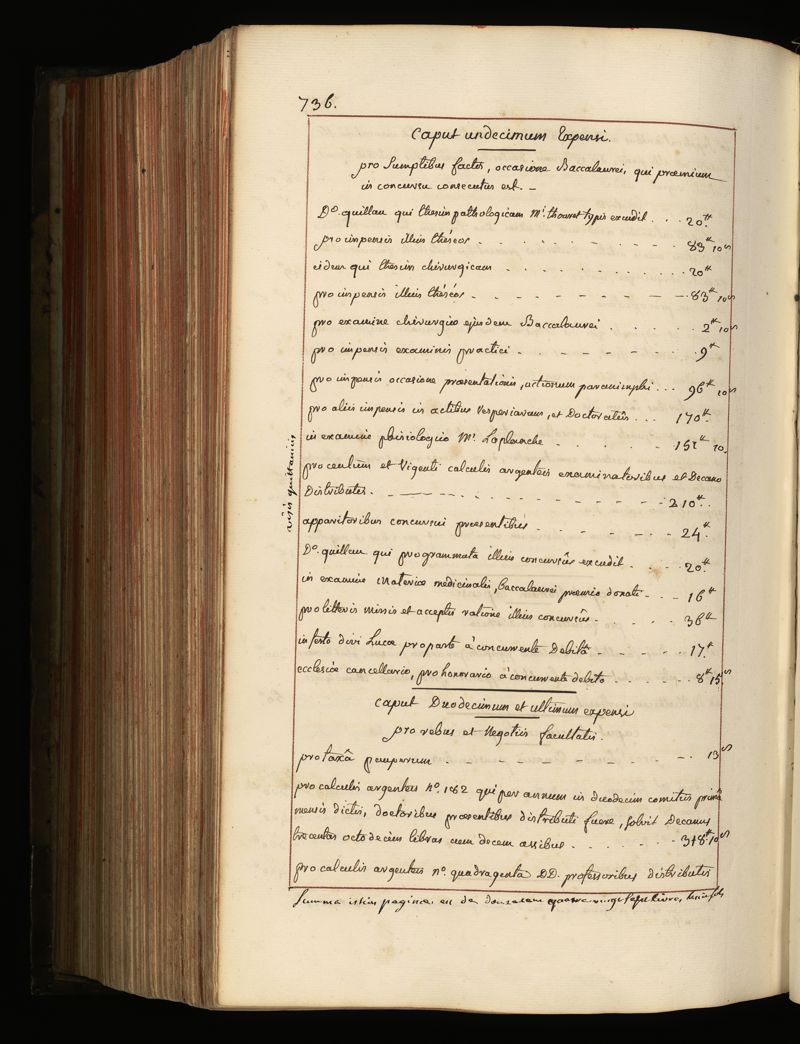 736.
Caput undecimum Expensi.
pro Sumptibus factis, occasione Baccalaurei, qui præmium
in concursu consecutus est. -
Do. quillau qui thesim pathologicam Mi. thouret typis excudit . . . 20.tt
pro impensis illius théseos . . . 83tt 10s
eidem qui thesim chirurgicam . . . 20tt
pro impensis illius théséos . . . 83tt 10s
pro examine chirurgico ejusdem Baccalaurei . . . 2tt 10s
pro impensis examinis practici . . . 9tt
pro impensis occasione præsentationis, actionum paranimphi . . . 96tt 10s
pro aliis impensis in actibus Vesperiarum, et Doctoratûs . . . 170tt
in examine phisiologico Mi. Laplanche . . . 151tt 10.
pro centum et Viginti calculis argenteis examinatoribus et Decano
Distributis . . . 210tt.
apparitoribus concursui præsentibus . . . 24.tt
Do. quillau qui programmata illius concursûs excudit . . . 20tt.
in examine Materiæ medicinalis, baccalaurei præmio donati . . . 16tt
pro litteris missis et acceptis ratione illius concursûs . . . 36tt
in festo divi Lucæ pro parte à concurrente Debitâ . . . 17.tt
ecclesiæ cancellario, pro honorario à concurrente debito . . . 8tt 15.s
visis quittanciis
Caput Duodecimum et ultimum expensi
pro rebus et Negotiis facultatis.
pro taxâ pauperum . . . 13s
pro calculis argenteis no. 182 qui per annum in duodecim comitiis primâ
mensis dictis, doctoribus præsentibus distributi fuere, solvit Decanus
trecentas octodecim libras cum decem assibus . . . 318tt 10s
pro calculis argenteis no. quadraginta DD. professoribus distributis
Summa istius paginæ est de quatre vingt sept livres,